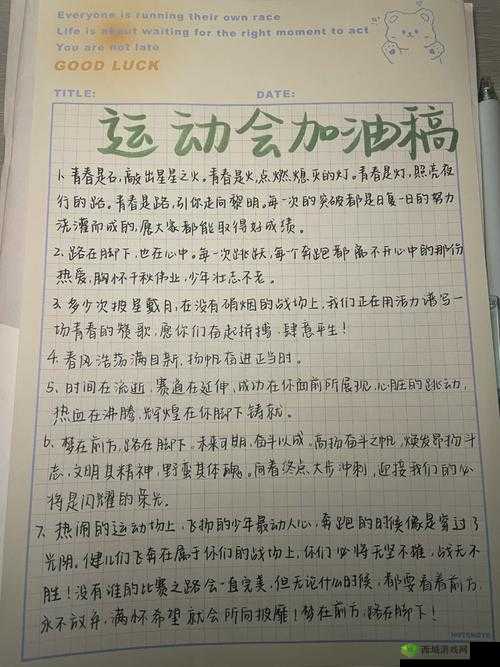 Everyone is running their own race
Life is about waiting for the right moment to act
You are not late
GOOD LUCK
TITLE: DATE:
运动会加油稿
1. 青春是石,敲出星星之火。青春是火,点燃熄灭的灯。青春是灯,照亮夜
行的路。青春是路,引你走向黎明。每一次的突破都是日复一日的努力
浇灌而成的,愿大家都能取得好成绩。
2. 路在脚下,也在心中。每一次跳跃,每个奔跑都离不开心中的那份
热爱,胸怀千秋伟业,少年壮志不老。
3. 多少次披星戴月,在没有硝烟的战场上,我们正在用活力谱写一
场青春的赞歌,愿你们奋起拼搏,肆意平生!
4. 春风浩荡满目新,扬帆奋进正当时。
5. 时间在流逝,赛道在延伸,成功在你面前所展现,心脏的跳动,
热血在沸腾,辉煌在你脚下铸就。
6. 梦在前方,路在脚下。未来可期,奋斗以成。高扬奋斗之帆,焕发昂扬斗
志,文明其精神,野蛮其体魄。向着终点大步冲刺,迎接我们的必
将是闪耀的荣光。
7. 热闹的运动场上,飞扬的少年最动人心,奔跑的时候像是穿过了
光阴。健儿们飞奔在属于你们的战场上,你们必将无坚不摧,战无不
胜!没有谁的比赛之路会一直完美,但无论什么时候,都要看着前方,
永不放弃,满怀希望就会所向披靡!梦在前方,路在脚下!
西域游戏网